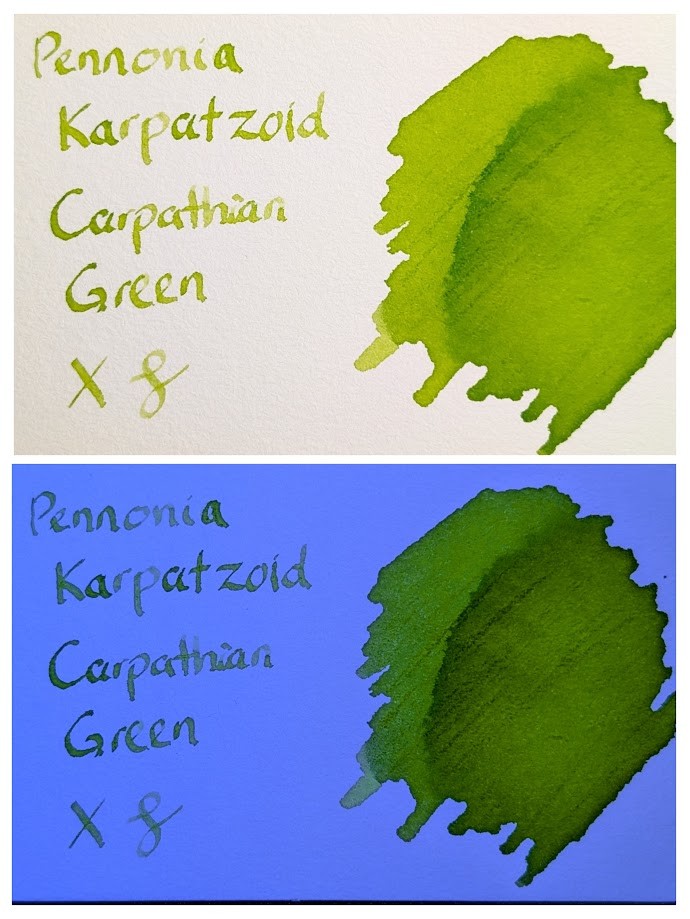 Pennonia
Karpatzoid
Carpathian
Green
X
Pennonia
Karpatzoid
Carpathian
Green
X